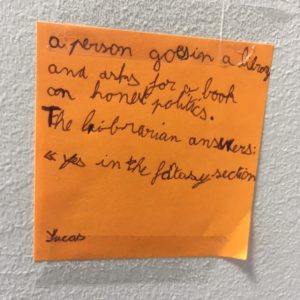 a person goes in a libray
and asks for a book
on honest politics.
The librarian answers:
" yes in the fatasy section
Lucas